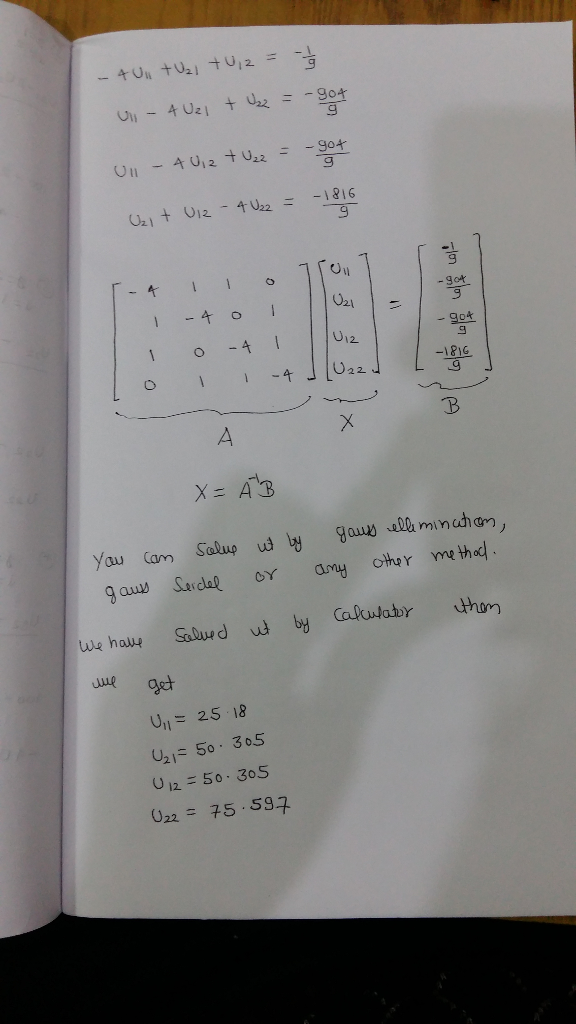 - 4U11 + U21 + U12 = -1/9
U11 - 4U21 + U22 = -904/9
U11 - 4U12 + U22 = -904/9
U21 + U12 - 4U22 = -1816/9
[ -4 1 1 0 ] [ U11 ] = [ -1/9 ]
[ 1 -4 0 1 ] [ U21 ] [ -904/9 ]
[ 1 0 -4 1 ] [ U12 ] [ -904/9 ]
[ 0 1 1 -4 ] [ U22 ] [ -1816/9 ]
A X B
X = A⁻¹B
You can Solve it by gauss ellimination,
gauss Seidel or any other method.
We have Solved it by Calculator then
we get
U11 = 25.18
U21 = 50.305
U12 = 50.305
U22 = 75.597